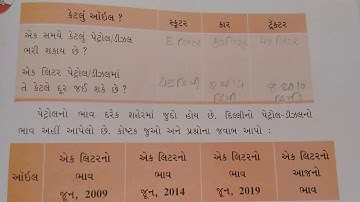 કેટલું ઑઇલ ? સ્કૂટર કાર ટ્રેક્ટર
એક સમયે કેટલું પેટ્રોલ/ડીઝલ
ભરી શકાય છે ?
એક લિટર પેટ્રોલ/ડીઝલમાં
તે કેટલે દૂર જઈ શકે છે ?
પેટ્રોલનો ભાવ દરેક શહેરમાં જુદો હોય છે. દિલ્લીનો પેટ્રોલ-ડીઝલનો
ભાવ અહીં આપેલો છે. કોષ્ટક જુઓ અને પ્રશ્નોના જવાબ આપો :
ઑઇલ
એક લિટરનો ભાવ જૂન, 2009
એક લિટરનો ભાવ જૂન, 2014
એક લિટરનો ભાવ જૂન, 2019
એક લિટરનો આજનો ભાવ